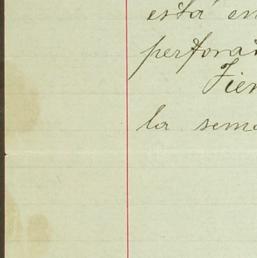 está en
perfora
Tien
la sem